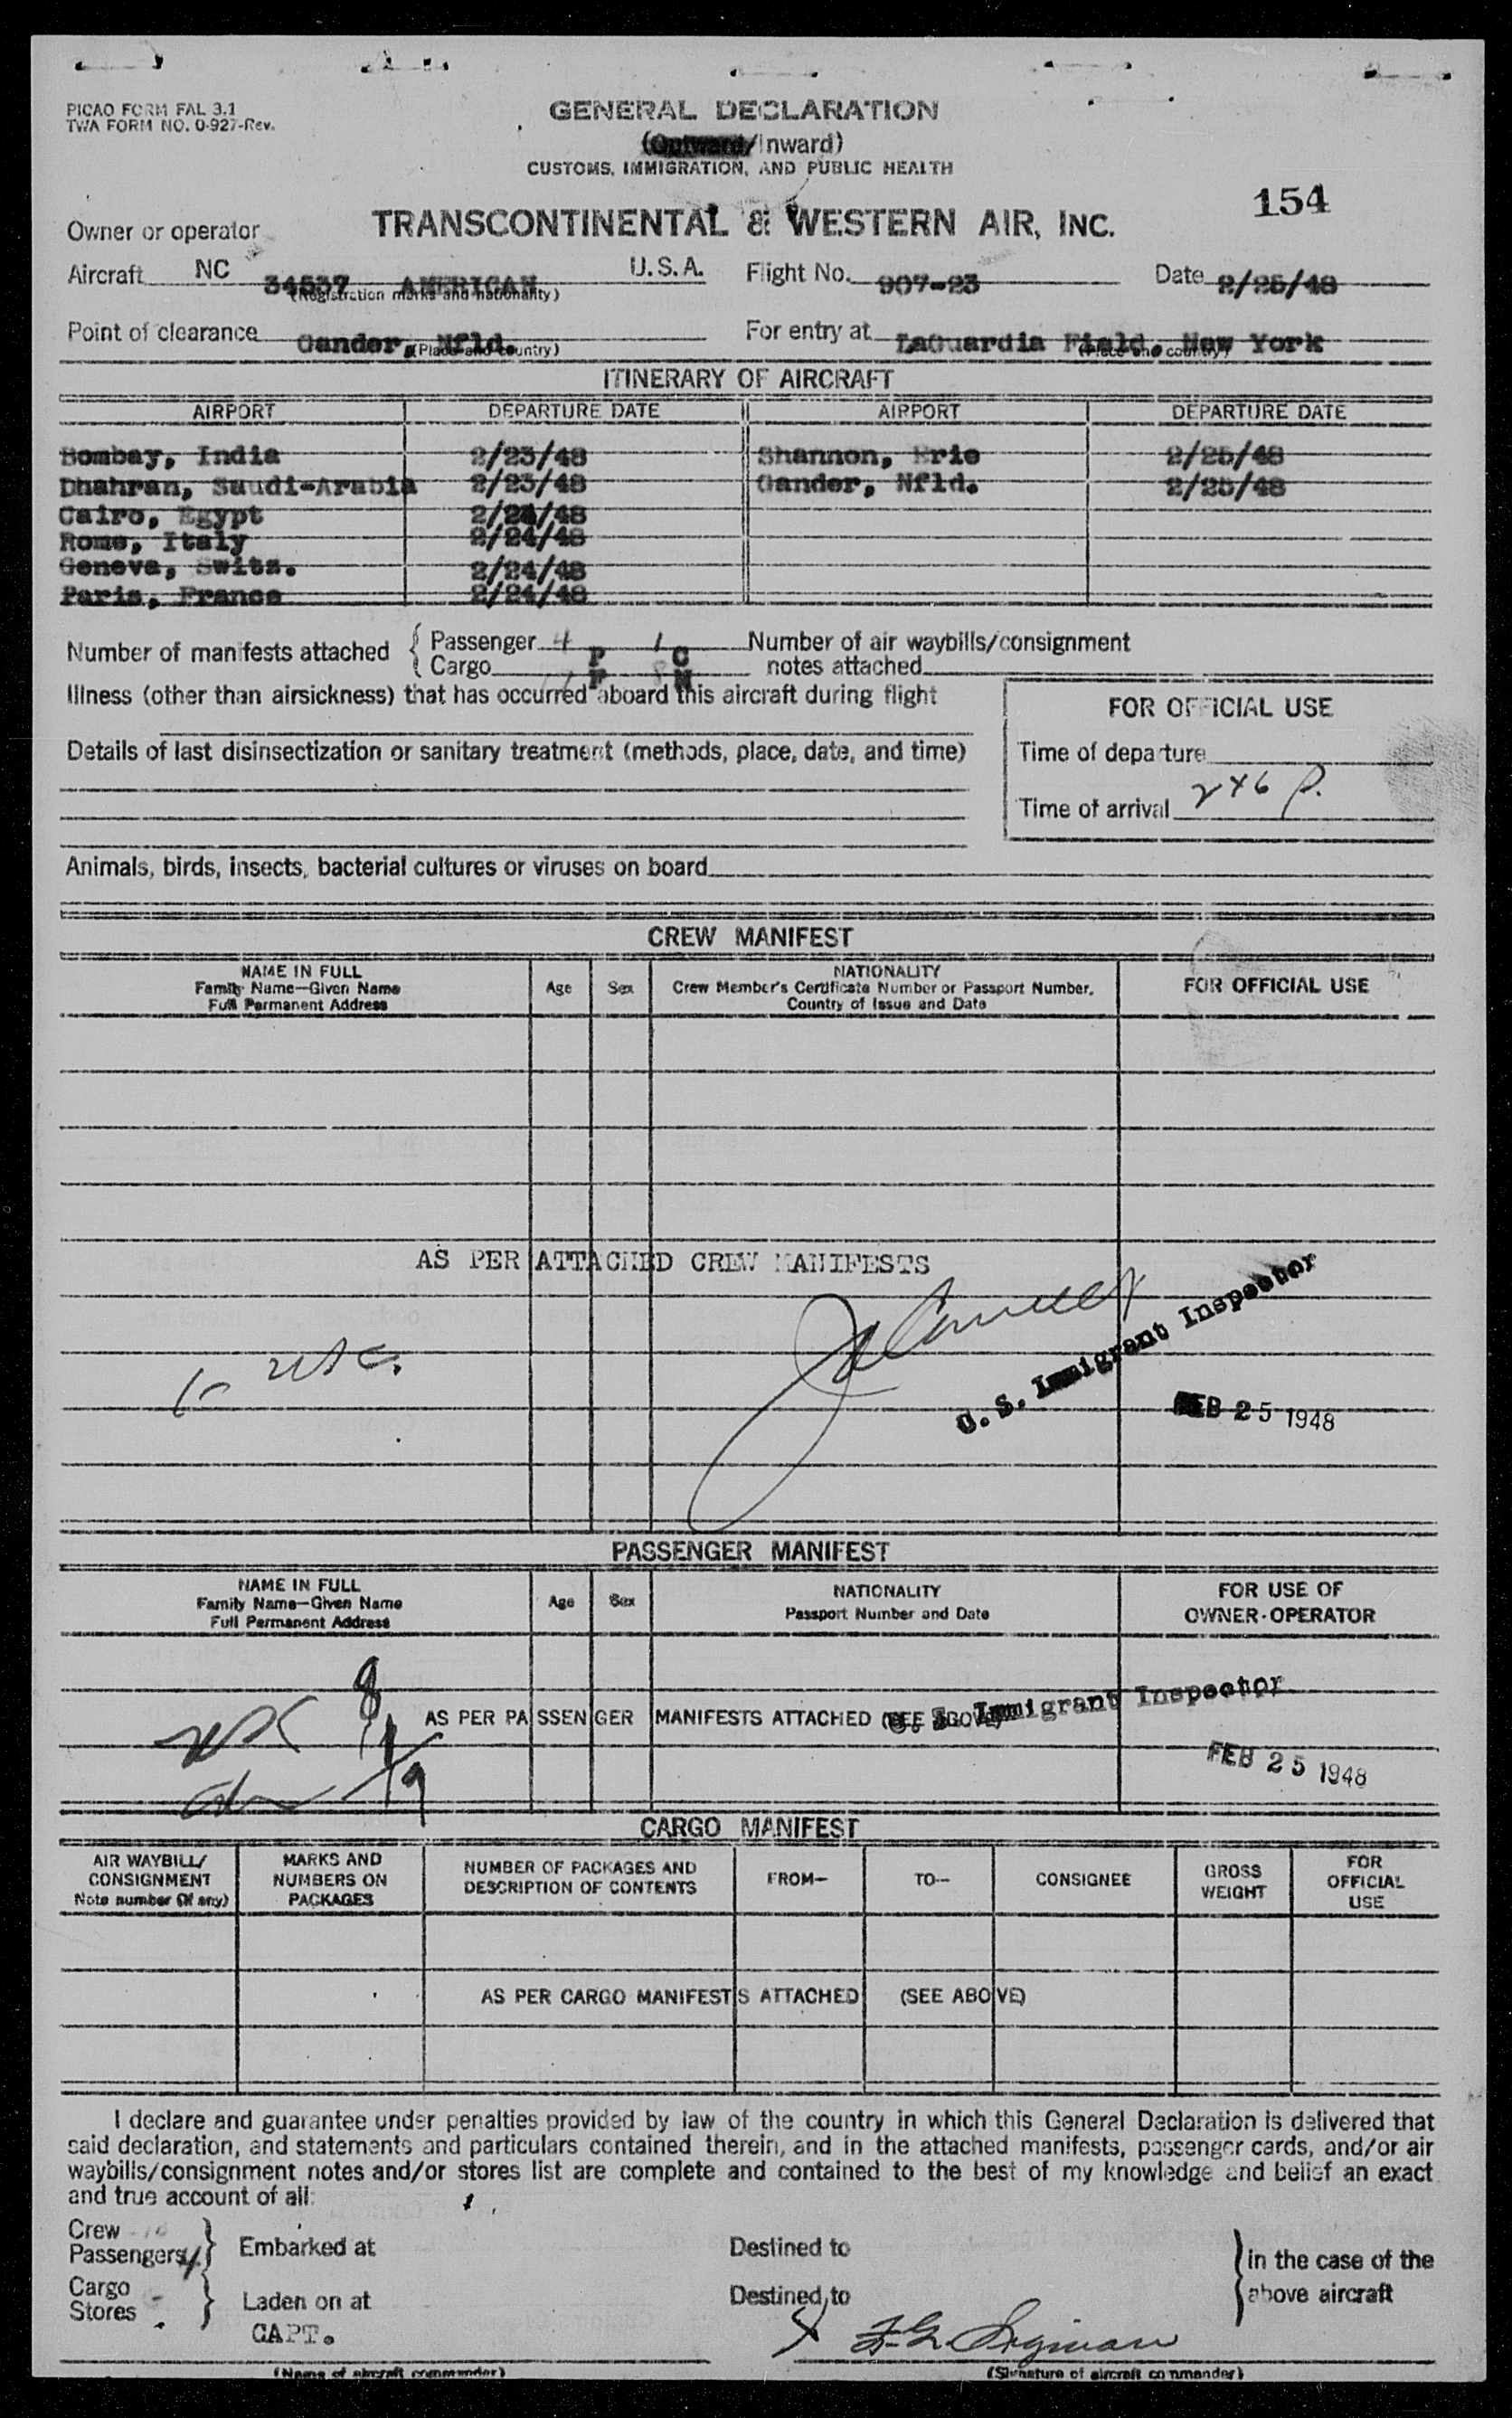 PICAO FORM FAL 3.1
TWA FORM NO. 0-927-Rev.
GENERAL DECLARATION
(Outward/Inward)
CUSTOMS, IMMIGRATION, AND PUBLIC HEALTH
154
Owner or operator TRANSCONTINENTAL & WESTERN AIR, INC.
Aircraft NC 34537 AMERICAN U.S.A. Flight No. 907-23 Date 2/25/48
(Registration marks and nationality)
Point of clearance Gander, Nfld. For entry at LaGuardia Field, New York
(Place and country) (Place and country)
ITINERARY OF AIRCRAFT
AIRPORT DEPARTURE DATE AIRPORT DEPARTURE DATE
Bombay, India 2/23/48 Shannon, Erie 2/25/48
Dhahran, Saudi-Arabia 2/23/48 Gander, Nfld. 2/25/48
Cairo, Egypt 2/24/48
Rome, Italy 2/24/48
Geneva, Switz. 2/24/48
Paris, France 2/24/48
Number of manifests attached { Passenger 4 P 1 C Number of air waybills/consignment
Cargo P 8 M notes attached
Illness (other than airsickness) that has occurred aboard this aircraft during flight
FOR OFFICIAL USE
Details of last disinsectization or sanitary treatment (methods, place, date, and time)
Time of departure
Time of arrival 246 P.
Animals, birds, insects, bacterial cultures or viruses on board
CREW MANIFEST
NAME IN FULL
Family Name—Given Name
Full Permanent Address
Age Sex
NATIONALITY
Crew Member's Certificate Number or Passport Number,
Country of Issue and Date
FOR OFFICIAL USE
AS PER ATTACHED CREW MANIFESTS
U. S. Immigrant Inspector
FEB 25 1948
PASSENGER MANIFEST
NAME IN FULL
Family Name—Given Name
Full Permanent Address
Age Sex
NATIONALITY
Passport Number and Date
FOR USE OF
OWNER-OPERATOR
AS PER PASSENGER MANIFESTS ATTACHED (SEE ABOVE)
U. S. Immigrant Inspector
FEB 25 1948
CARGO MANIFEST
AIR WAYBILL/
CONSIGNMENT
Note number (if any)
MARKS AND
NUMBERS ON
PACKAGES
NUMBER OF PACKAGES AND
DESCRIPTION OF CONTENTS
FROM—
TO—
CONSIGNEE
GROSS
WEIGHT
FOR
OFFICIAL
USE
AS PER CARGO MANIFESTS ATTACHED (SEE ABOVE)
I declare and guarantee under penalties provided by law of the country in which this General Declaration is delivered that
said declaration, and statements and particulars contained therein, and in the attached manifests, passenger cards, and/or air
waybills/consignment notes and/or stores list are complete and contained to the best of my knowledge and belief an exact
and true account of all:
Crew
Passengers } Embarked at Destined to } in the case of the
Cargo
Stores } Laden on at Destined to above aircraft
CAPT.
(Name of aircraft commander) (Signature of aircraft commander)